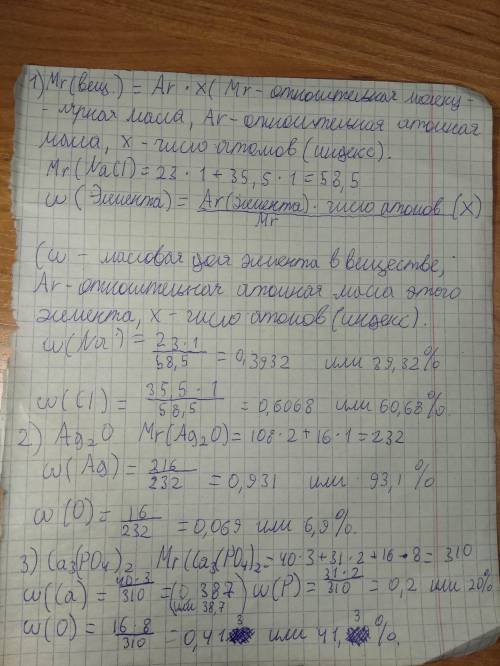 1) Mr(вещ.) = Ar · x ( Mr - относительная молеку-
- лярная масса, Ar - относительная атомная
масса, x - число атомов (индекс).
Mr(NaCl) = 23 · 1 + 35,5 · 1 = 58,5
ω (Элемента) = Ar(элемента) · число атомов (x) / Mr
(ω - массовая доля элемента в веществе,
Ar - относительная атомная масса этого
элемента, x - число атомов (индекс).
ω(Na) = 23·1 / 58,5 = 0,3932 или 39,32%
ω(Cl) = 35,5 · 1 / 58,5 = 0,6068 или 60,68%.
2) Ag₂O Mr(Ag₂O) = 108·2 + 16·1 = 232
ω(Ag) = 216 / 232 = 0,931 или 93,1%
ω(O) = 16 / 232 = 0,069 или 6,9%.
3) Ca₃(PO₄)₂ Mr(Ca₃(PO₄)₂ = 40·3 + 31·2 + 16·8 = 310
ω(Ca) = 40·3 / 310 = (0,387 или 38,7) ω(P) = 31·2 / 310 = 0,2 или 20%
ω(O) = 16·8 / 310 = 0,413 или 41,3%.